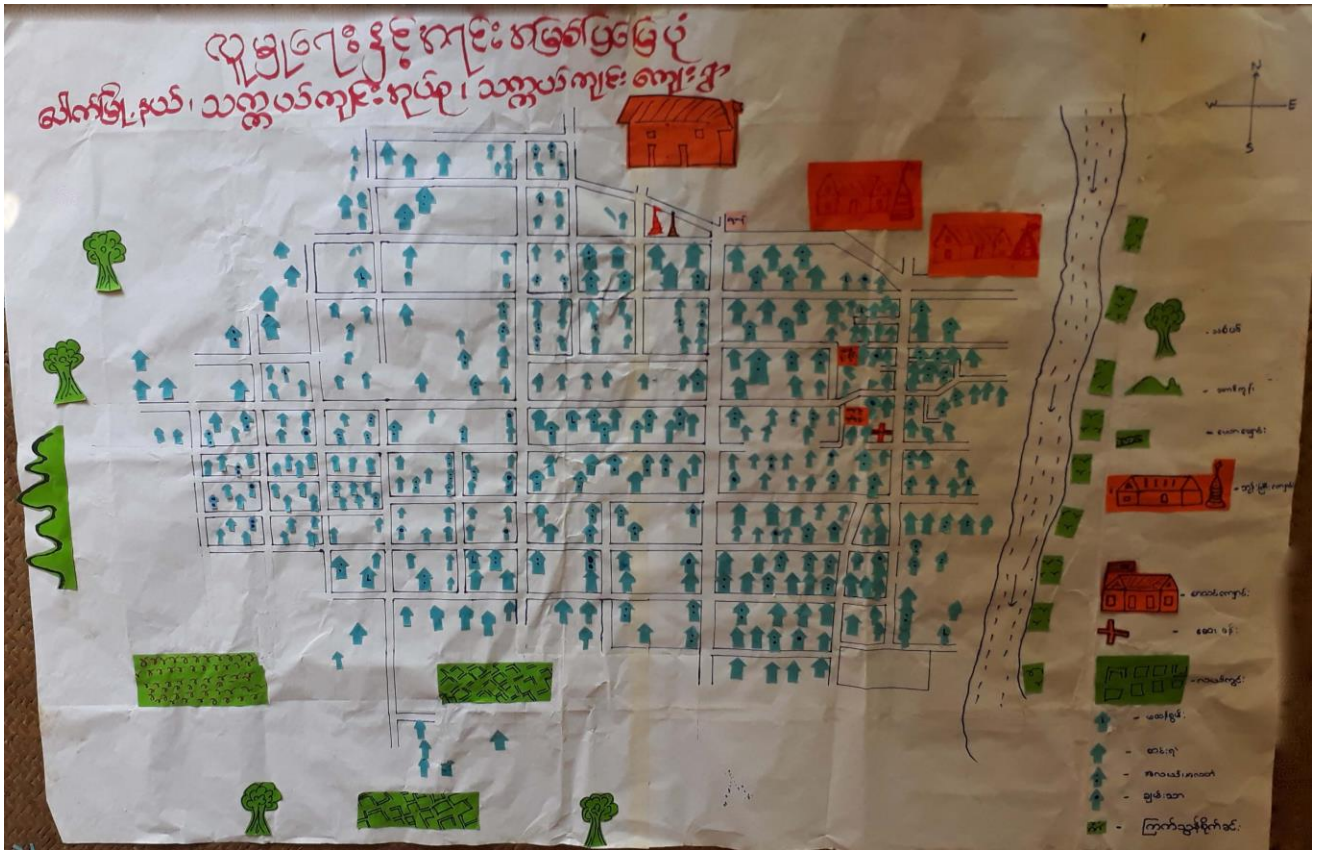 လူမှုရေးနှင့်အရင်းအမြစ်ပြမြေပုံ
ပေါက်မြို့နယ်၊ သက္ကယ်ကျင်းအုပ်စု၊ သက္ကယ်ကျင်းကျေးရွာ
N
W E
S
- သစ်ပင်
- တောင်ကုန်း
- ဘုန်းကြီးကျောင်း
- စာသင်ကျောင်း
- ဆေးခန်း
- လယ်ကွင်း
- မထနွမ်း
- ဆင်းရဲ
- အလယ်အလတ်
- ချမ်းသာ
- ကြက်သွန်စိုက်ခင်း